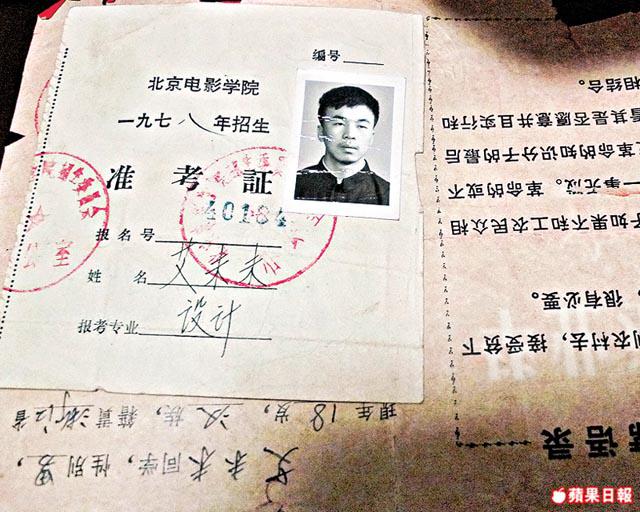 编号
北京电影学院
一九七八年招生
准考证
报名号 40184
姓名 艾未未
报考专业 设计
艾未未同学，性别男，
现年18岁，汉族，籍贯浙江省
语录
到农村去，接受贫下
很有必要。
子如果不和工农民众相
一事无成。革命的或不
革命的知识分子的最后
看其是否愿意并且实行和
相结合。
蘋果日報